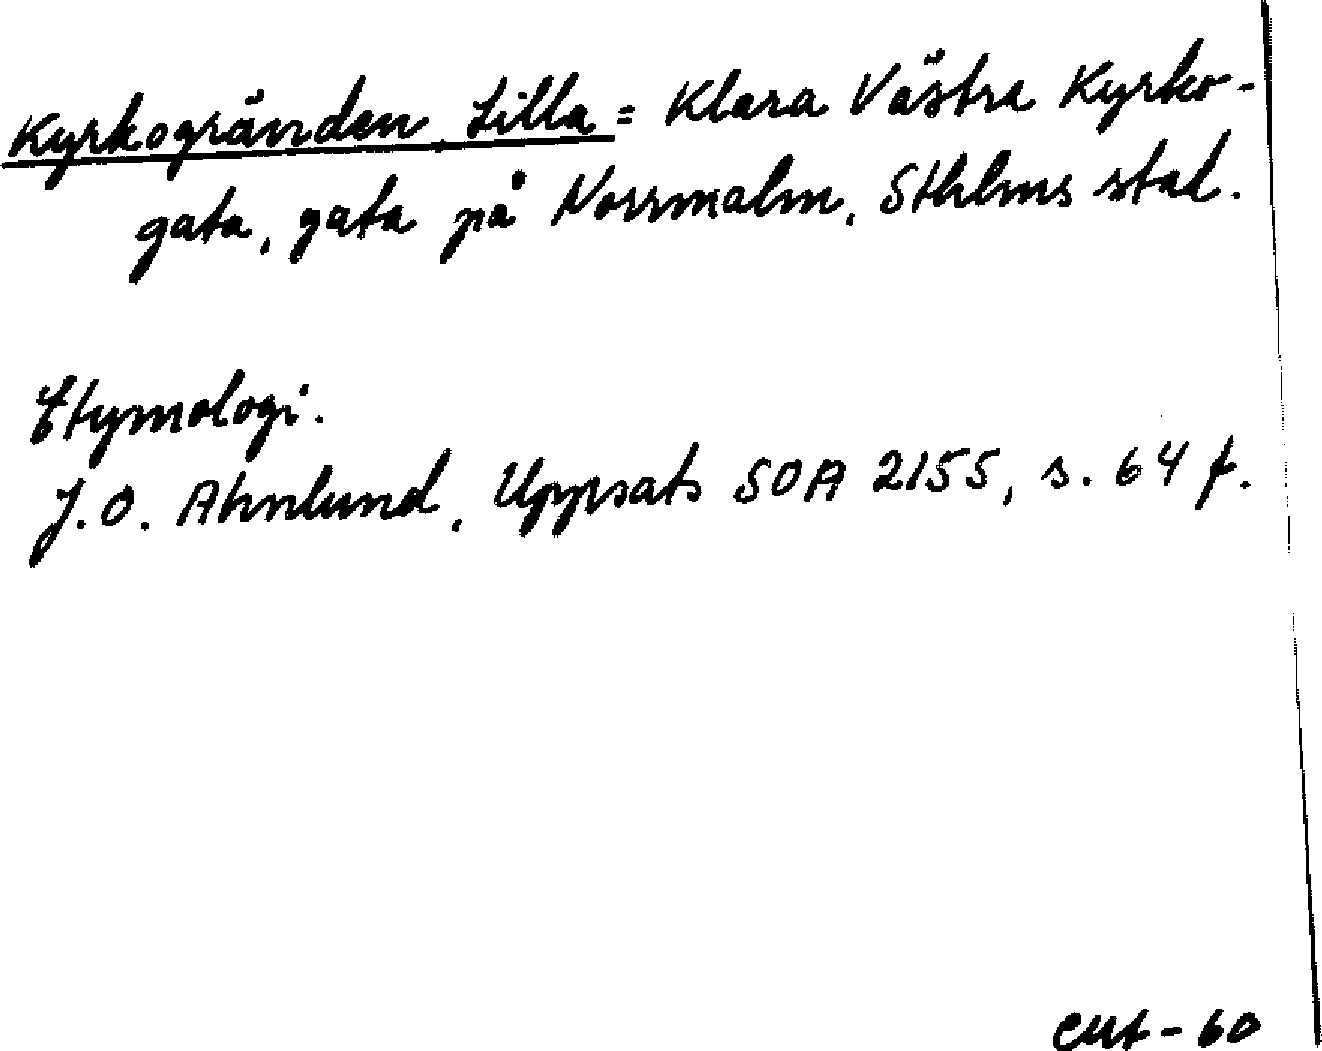 Kyrkogränden, Lilla = Klara Västra Kyrko-
gata, gata på Norrmalm, Sthlms stad.
Etymologi.
J.O. Ahnlund, Uppsats SOA 2155, s. 64 f.
-60